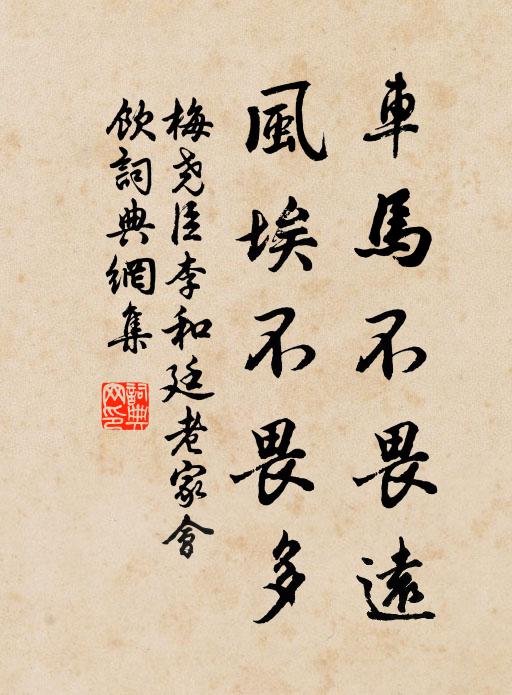 車馬不畏遠
風埃不畏多
梅堯臣李和廷老家會
飲詞典網集
詞典
网印